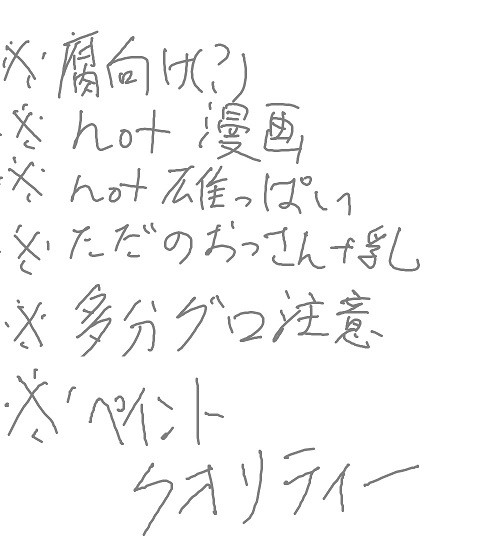 ※腐向け?)
※not 漫画
※not 雄っぱい
※ただのおっさん+乳
※多分グロ注意
※ペイント
クオリティー